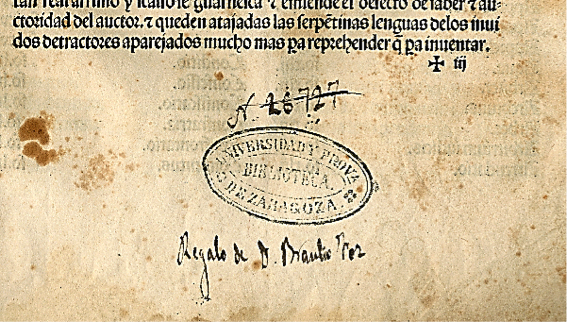 tan real animo y stando le guarneica ⁊ emiende el defecto de saber ⁊ au-
ctoridad del auctor. ⁊ queden atajadas las serpētinas lenguas delos inui
dos detractores aparejados mucho mas pa reprehender q̄ pa inuentar.
✠ iij
N. 26727
UNIVERSIDAD Y PROVA
BIBLIOTECA.
DE ZARAGOZA.
Regalo de D. Braulio Foz